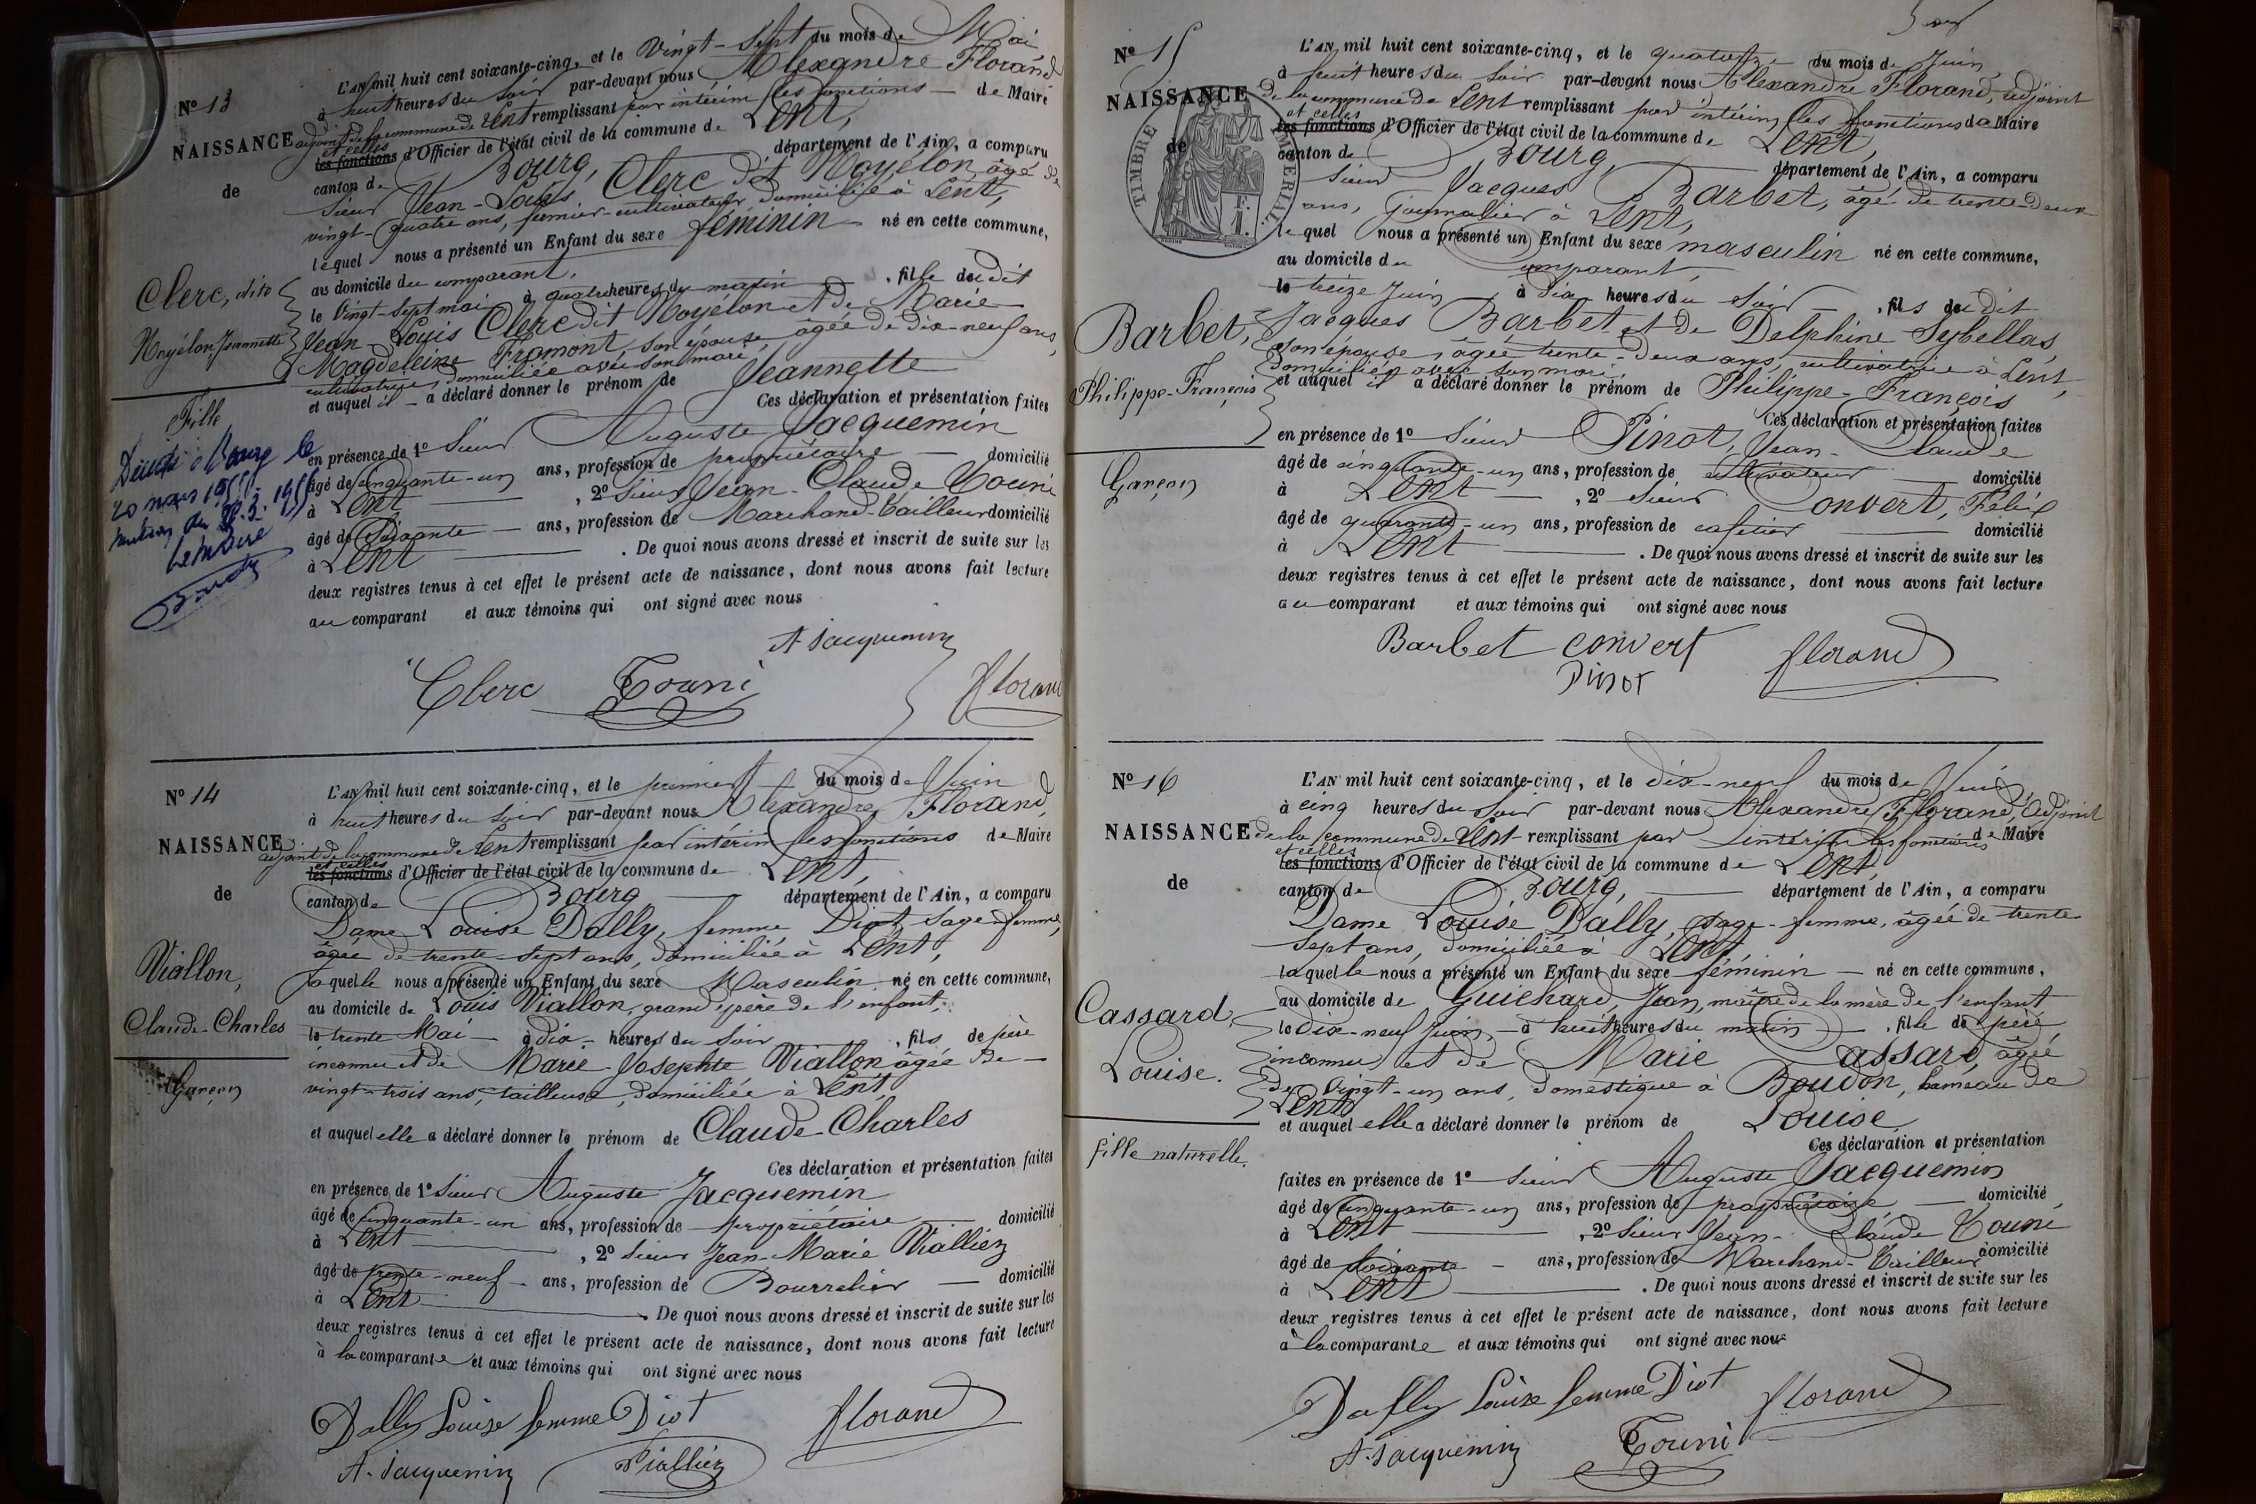 N° 13
NAISSANCE
de
Clerc, dito
Noyélon Jeannette
Fille
Décédée à Bourg le
20 mars 1955
Le maire
L'AN mil huit cent soixante-cinq, et le Vingt-Sept du mois de Mai
à huit heures du soir par-devant nous Alexandre Florand
adjoint de la commune de Lent remplissant par intérim les fonctions de Maire
et celles
les fonctions d'Officier de l'état civil de la commune de Lent,
canton de Bourg, département de l'Ain, a comparu
Sieur Jean-Louis Clerc dit Noyélon, âgé de
vingt-quatre ans, fermier-cultivateur, domicilié à Lent,
lequel nous a présenté un Enfant du sexe féminin né en cette commune,
au domicile du comparant,
le Vingt-sept mai à quatre heures du matin, fille dudit
Jean-Louis Clerc dit Noyélon et de Marie
Magdeleine Fromont son épouse, âgée de dix-neuf ans,
cultivatrice, domiciliée avec son mari
et auquel il a déclaré donner le prénom de Jeannette
Ces déclaration et présentation faites
en présence de 1° Sieur Auguste Jacquemin
âgé de cinquante-un ans, profession de propriétaire domicilié
à Lent, 2° Sieur Jean-Claude Touni
âgé de Soixante ans, profession de Marchand-Tailleur domicilié
à Lent. De quoi nous avons dressé et inscrit de suite sur les
deux registres tenus à cet effet le présent acte de naissance, dont nous avons fait lecture
au comparant et aux témoins qui ont signé avec nous
A Jacquemin
Clerc Touni Florand
N° 14
NAISSANCE
de
Viallon,
Claude-Charles
Garçon
L'AN mil huit cent soixante-cinq, et le premier du mois de Juin
à huit heures du soir par-devant nous Alexandre Florand,
adjoint de la commune de Lent remplissant par intérim les fonctions de Maire
et celles
les fonctions d'Officier de l'état civil de la commune de Lent,
canton de Bourg département de l'Ain, a comparu
Dame Louise Dally, femme Diot, sage-femme,
âgée de trente-sept ans, domiciliée à Lent,
laquelle nous a présenté un Enfant du sexe Masculin né en cette commune,
au domicile de Louis Viallon, grand père de l'enfant,
le trente Mai à dix heures du soir, fils de père
inconnu et de Marie Josephte Viallon âgée de
vingt-trois ans, tailleuse, domiciliée à Lent,
et auquel elle a déclaré donner le prénom de Claude-Charles
Ces déclaration et présentation faites
en présence de 1° Sieur Auguste Jacquemin
âgé de cinquante-un ans, profession de propriétaire domicilié
à Lent, 2° Sieur Jean-Marie Vialliez
âgé de trente-neuf ans, profession de Bourrelier domicilié
à Lent. De quoi nous avons dressé et inscrit de suite sur les
deux registres tenus à cet effet le présent acte de naissance, dont nous avons fait lecture
à la comparante et aux témoins qui ont signé avec nous
Dally Louise femme Diot Florand
A. Jacquemin Vialliez
N° 15
NAISSANCE
de
TIMBRE IMPERIAL
Barbet,
Philippe-François
Garçon
L'AN mil huit cent soixante-cinq, et le quatorze du mois de Juin
à huit heures du soir par-devant nous Alexandre Florand, adjoint
de la commune de Lent remplissant par intérim les fonctions de Maire
et celles
les fonctions d'Officier de l'état civil de la commune de Lent,
canton de Bourg, département de l'Ain, a comparu
Sieur Jacques Barbet, âgé de trente-deux
ans, journalier à Lent,
lequel nous a présenté un Enfant du sexe masculin né en cette commune,
au domicile du comparant,
le treize Juin à dix heures du soir, fils dudit
Jacques Barbet et de Delphine Sybellas,
son épouse, âgée trente-deux ans, cultivatrice à Lent,
domiciliée avec son mari,
et auquel il a déclaré donner le prénom de Philippe-François
Ces déclaration et présentation faites
en présence de 1° Sieur Pinot, Jean-Claude
âgé de cinquante-un ans, profession de cultivateur domicilié
à Lent, 2° Sieur Convert, Félix
âgé de quarante-un ans, profession de cafetier domicilié
à Lent. De quoi nous avons dressé et inscrit de suite sur les
deux registres tenus à cet effet le présent acte de naissance, dont nous avons fait lecture
au comparant et aux témoins qui ont signé avec nous
Barbet convert Florand
Pinot
N° 16
NAISSANCE
de
Cassard,
Louise.
fille naturelle.
L'AN mil huit cent soixante-cinq, et le dix-neuf du mois de Juin
à cinq heures du soir par-devant nous Alexandre Florand, adjoint
de la commune de Lent remplissant par intérim les fonctions de Maire
et celles
les fonctions d'Officier de l'état civil de la commune de Lent,
canton de Bourg, département de l'Ain, a comparu
Dame Louise Dally, sage-femme, âgée de trente
sept ans, domiciliée à Lent,
laquelle nous a présenté un Enfant du sexe féminin né en cette commune,
au domicile de Guichard, Jean, maître de la mère de l'enfant
le dix-neuf Juin à huit heures du matin, fille de père
inconnu et de Marie Cassard, âgée
de vingt-un ans, domestique à Boudon, hameau de
Lent
et auquel elle a déclaré donner le prénom de Louise
Ces déclaration et présentation
faites en présence de 1° Sieur Auguste Jacquemin
âgé de cinquante-un ans, profession de propriétaire domicilié
à Lent, 2° Sieur Jean-Claude Touni
âgé de soixante ans, profession de Marchand-Tailleur domicilié
à Lent. De quoi nous avons dressé et inscrit de suite sur les
deux registres tenus à cet effet le présent acte de naissance, dont nous avons fait lecture
à la comparante et aux témoins qui ont signé avec nous
Dally Louise femme Diot Florand
A. Jacquemin Touni